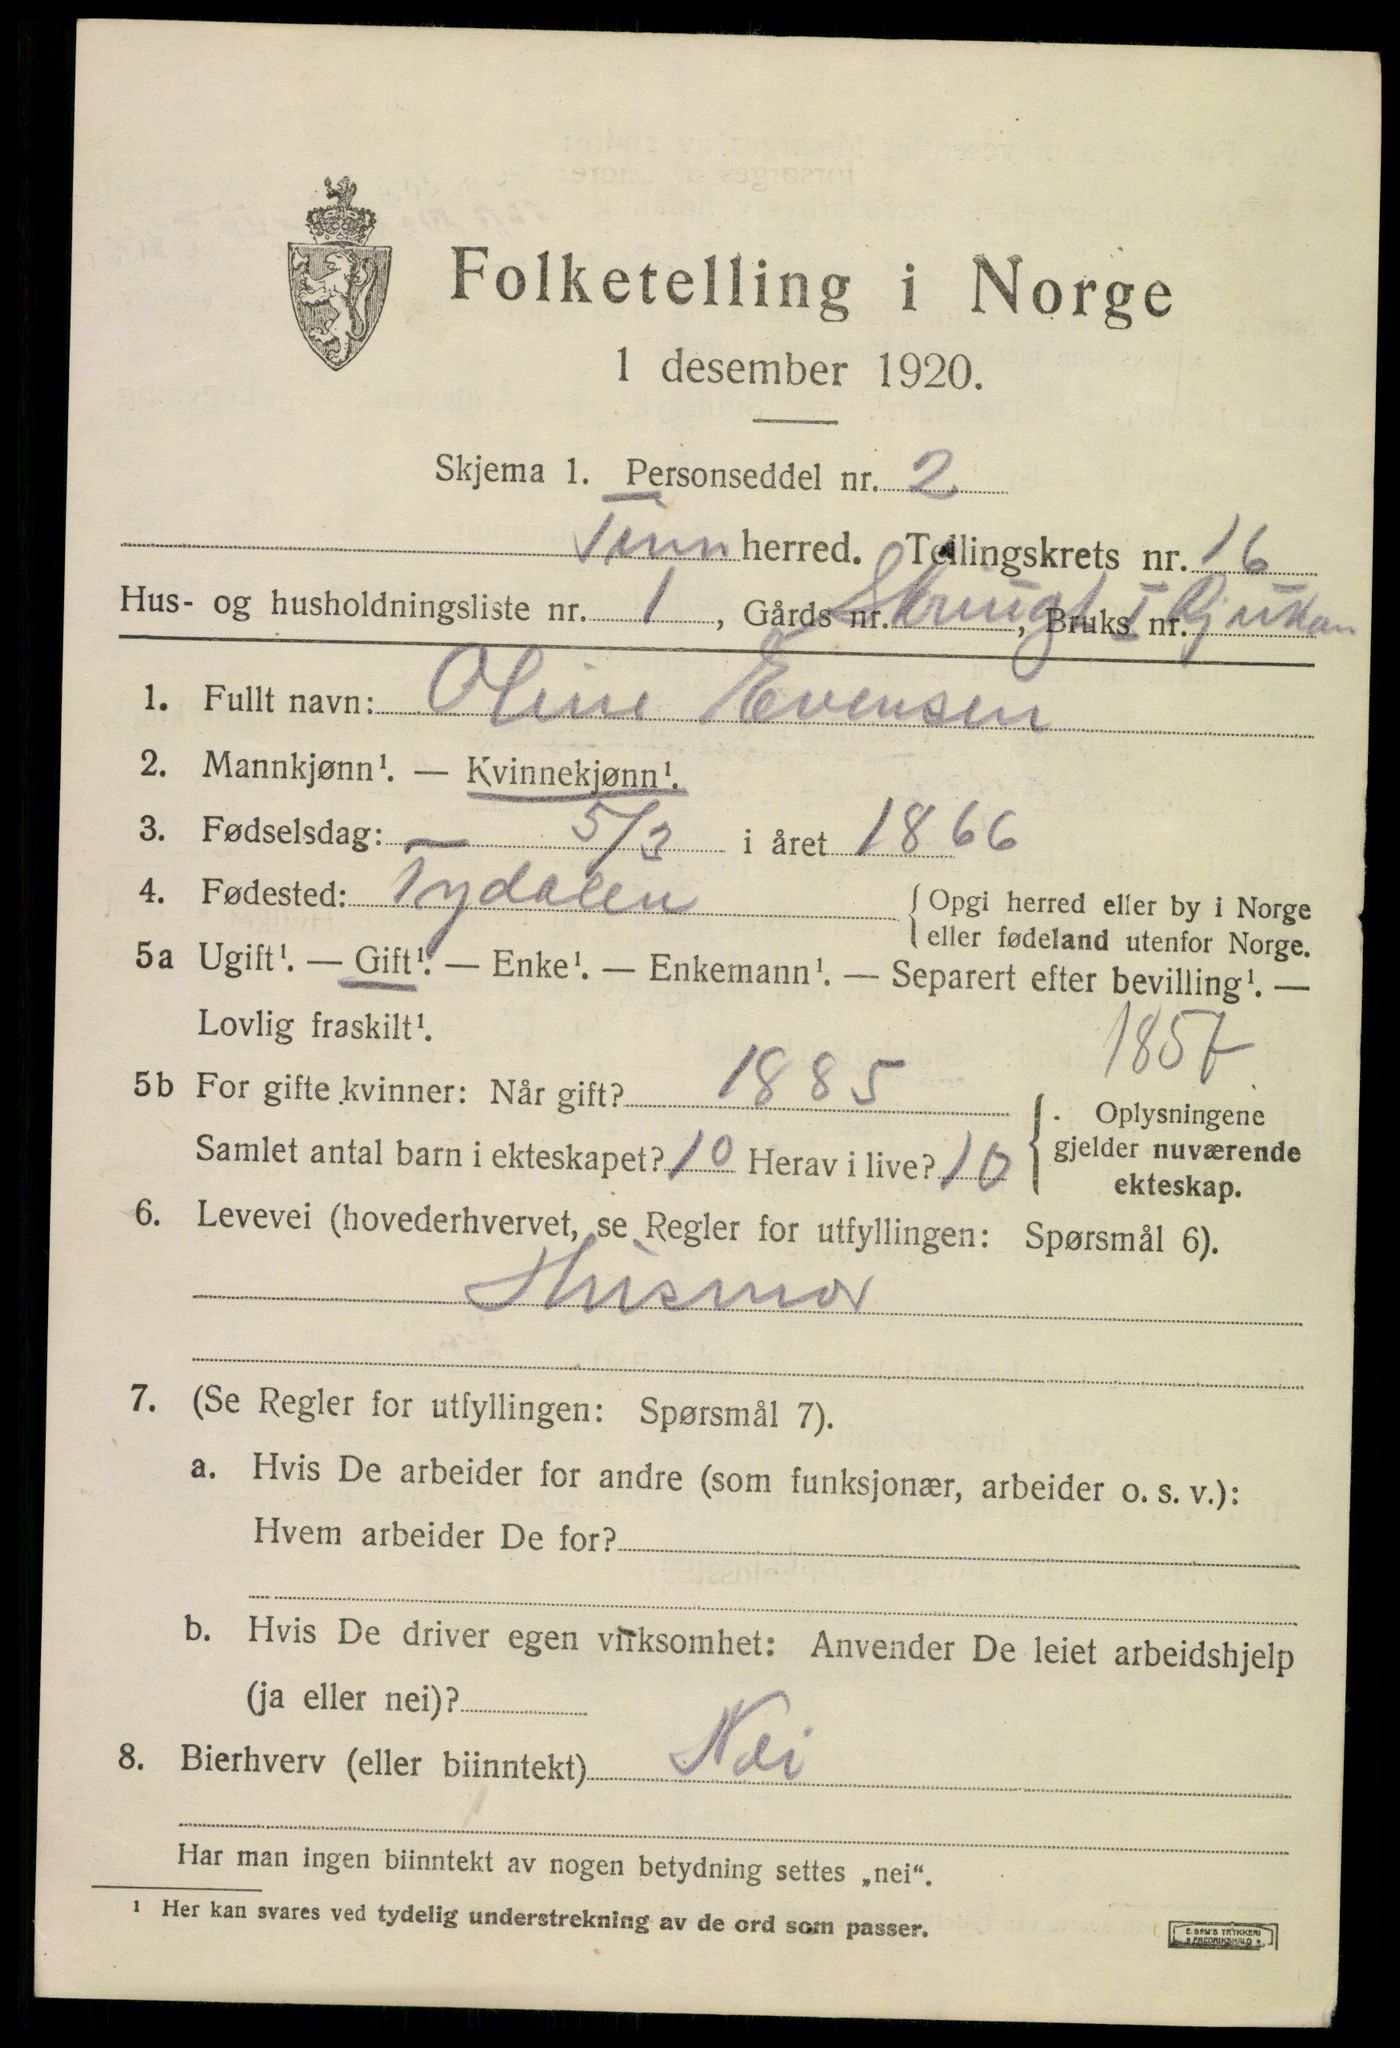 Folketelling i Norge
1 desember 1920.
Skjema 1. Personseddel nr. 2
Tinn herred. Tellingskrets nr. 16
Hus- og husholdningsliste nr. 1, Gårds nr. , Bruks nr. I Rjukan
1. Fullt navn: Oline Evensen
2. Mannkjønn¹. — Kvinnekjønn¹.
3. Fødselsdag: 5/3 i året 1866
4. Fødested: Tydalen { Opgi herred eller by i Norge
eller fødeland utenfor Norge.
5a Ugift¹. — Gift¹. — Enke¹. — Enkemann¹. — Separert efter bevilling¹. —
Lovlig fraskilt¹.
1857
5b For gifte kvinner: Når gift? 1885
Samlet antal barn i ekteskapet? 10 Herav i live? 10
{ Oplysningene
gjelder nuværende
ekteskap.
6. Levevei (hovederhvervet, se Regler for utfyllingen: Spørsmål 6).
Husmor
7. (Se Regler for utfyllingen: Spørsmål 7).
a. Hvis De arbeider for andre (som funksjonær, arbeider o. s. v.):
Hvem arbeider De for?
b. Hvis De driver egen virksomhet: Anvender De leiet arbeidshjelp
(ja eller nei)?
8. Bierhverv (eller biinntekt) Nei
Har man ingen biinntekt av nogen betydning settes „nei“.
¹ Her kan svares ved tydelig understrekning av de ord som passer.
E. SEM'S TRYKKERI
FREDRIKSHALD